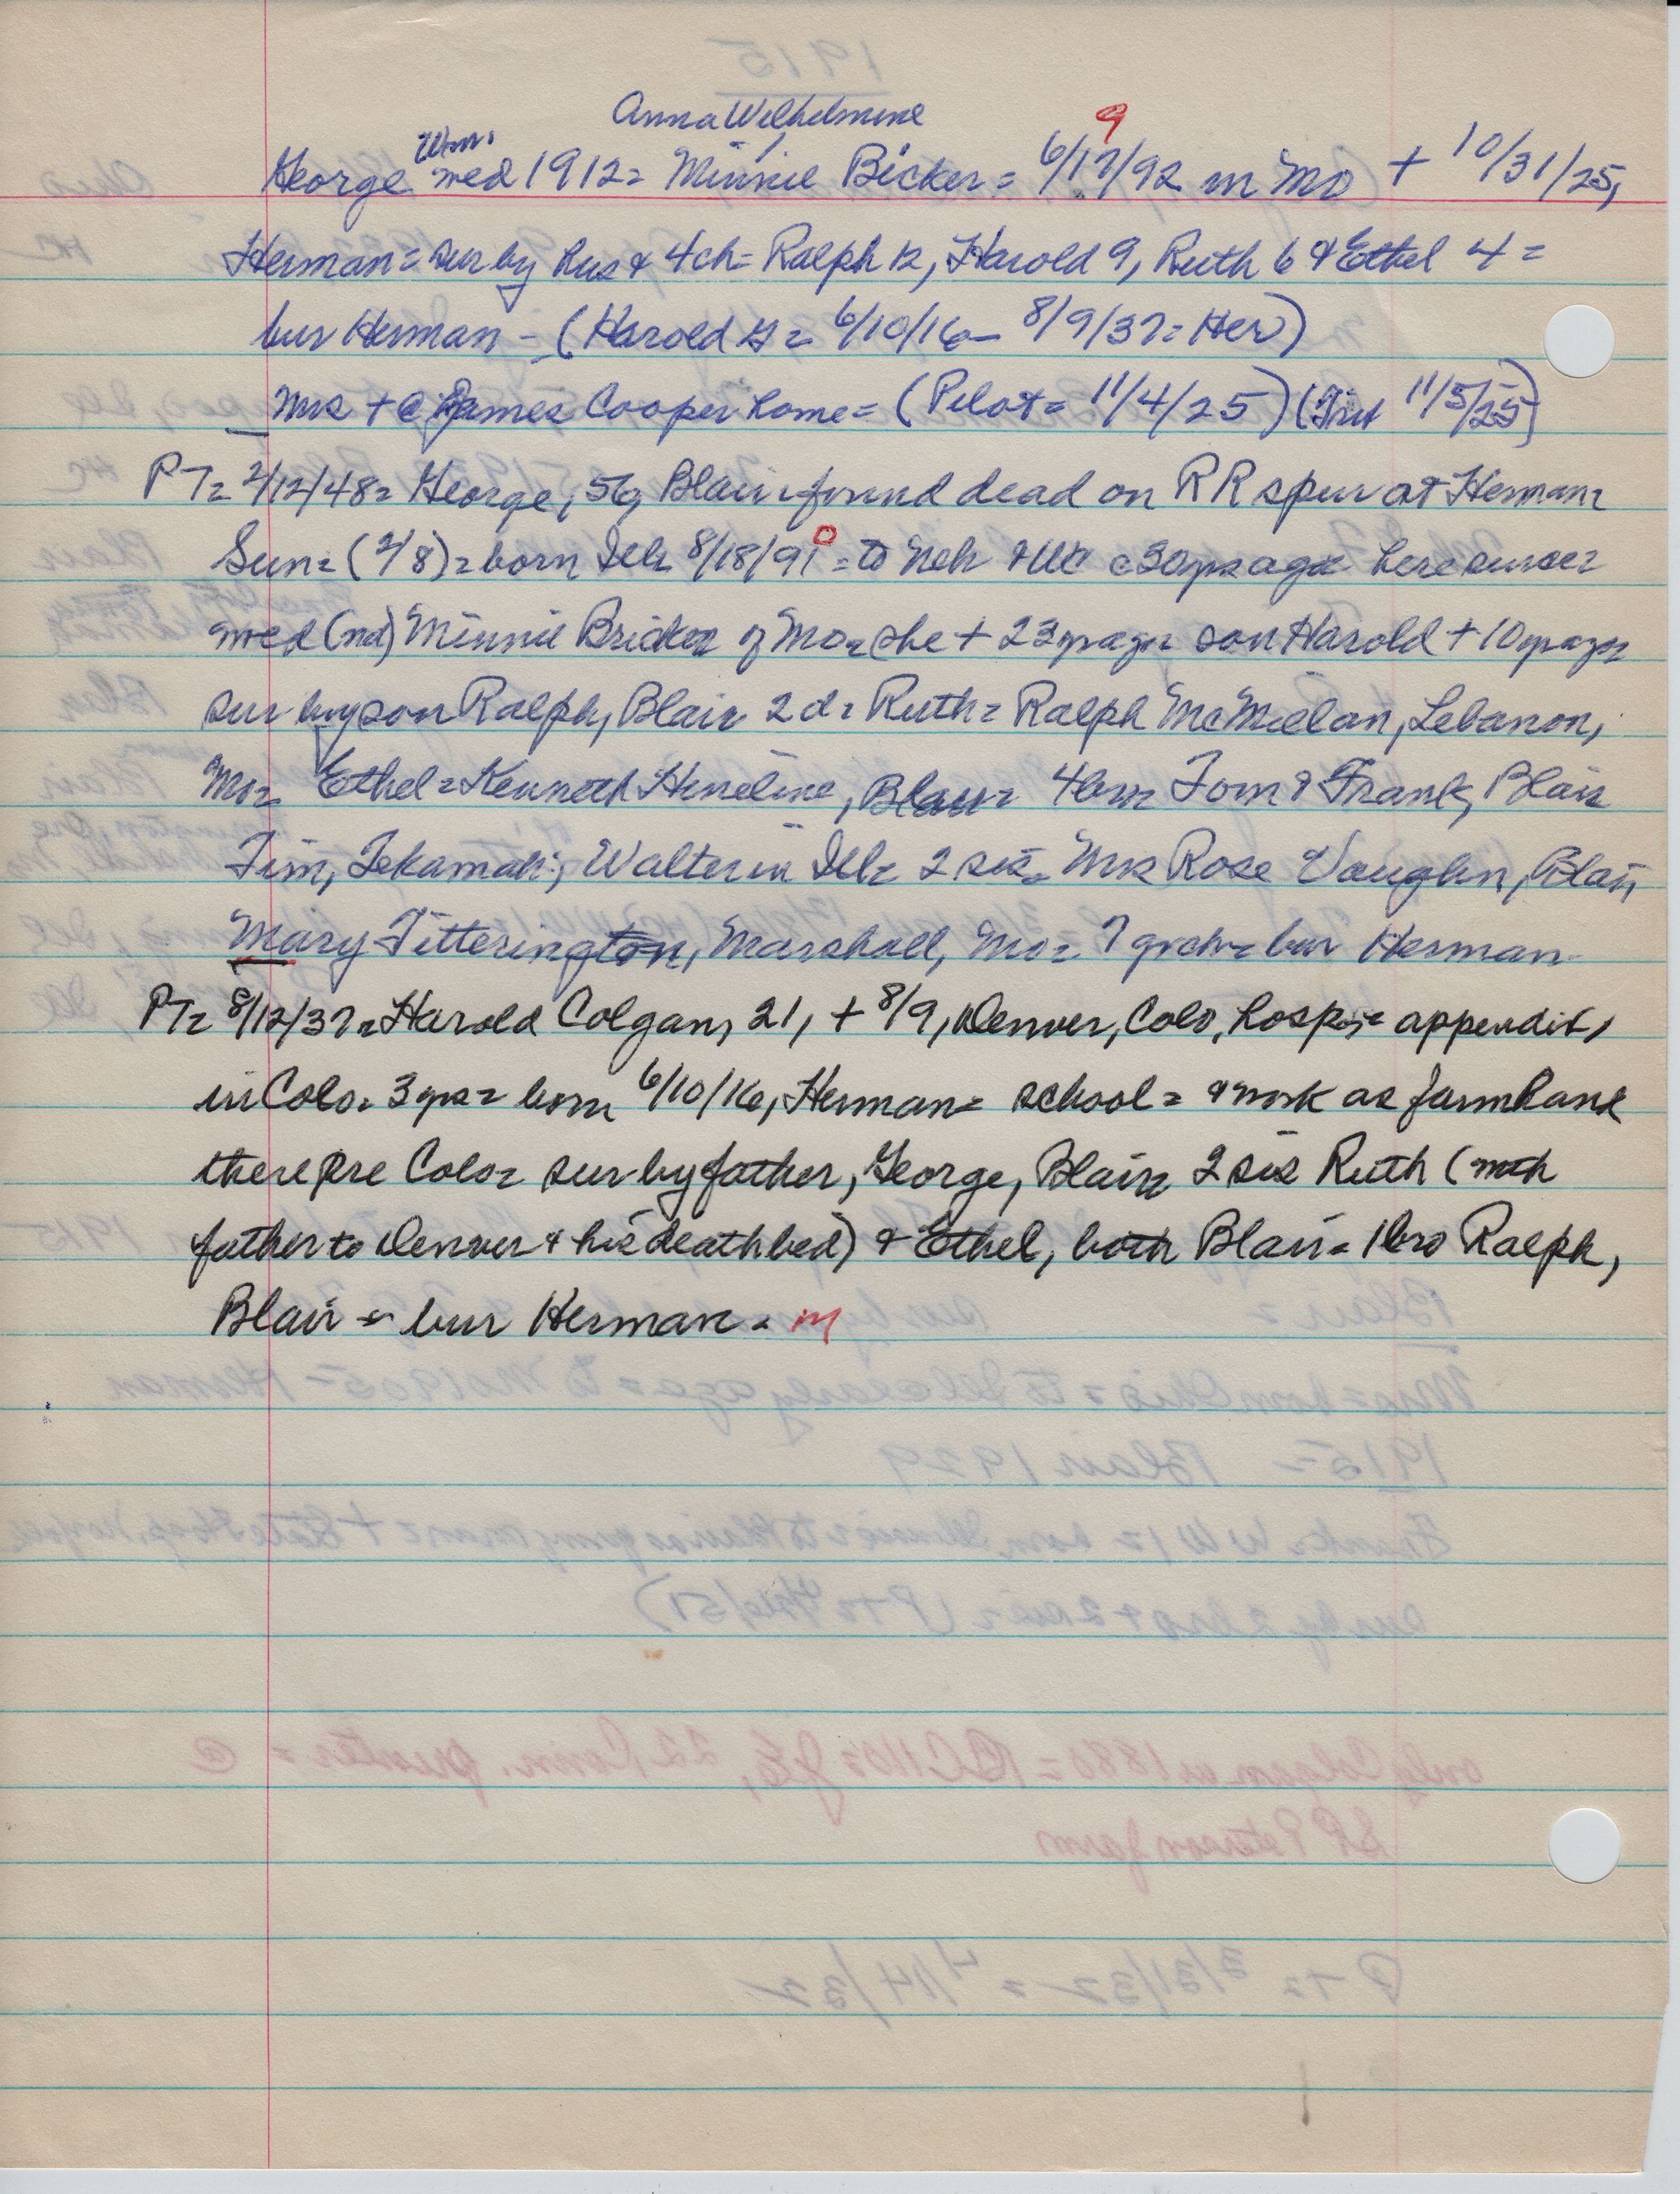 Anna Wilhelmine
Wm. 9
George med 1912= Minnie Bicker= 6/17/92 in Mo + 10/31/25,
Herman= sur by hus & 4 ch= Ralph 12, Harold 9, Ruth 6 & Ethel 4=
bur Herman - (Harold G= 6/10/16- 8/9/37= Her)
Mrs + @ James Cooper home= (Pilot= 11/4/25) (Trib 11/5/25)
PT= 2/12/48= George, 56, Blair= found dead on RR spur at Herman=
Sun= (2/8)= born Ill= 8/18/91 0 = to Neb & WC c30 yrs ago= here since=
med (nd) Minnie Bricker of Mo= she + 23 yr ago= son Harold + 10 yr ago=
sur by son Ralph, Blair 2 d= Ruth= Ralph McMillan, Lebanon,
Mo= Ethel= Kenneth Hineline, Blair= 4 bro= Tom & Frank, Blair
Jim, Tekamah; Walter in Ill= 2 sis= Mrs Rose Vaughn, Blair,
Mary Titterington, Marshall, Mo= 7 grch= bur Herman-
PT= 8/12/37= Harold Colgan, 21, + 8/9, Denver, Colo, hosp= appendix,
in Colo= 3 yrs= born 6/10/16, Herman= school= & work as farmhand
there pre Colo= sur by father, George, Blair= 2 sis Ruth (with
father to Denver & his deathbed) & Ethel, both Blair= 1 bro Ralph,
Blair = bur Herman = M